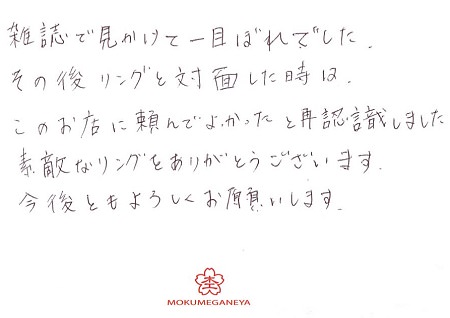 雑誌で見かけて一目ぼれでした.
その後リングと対面した時は.
このお店に頼んでよかったと再認識しました
素敵なリングをありがとうございます.
今後ともよろしくお願いします.
MOKUMEGANEYA